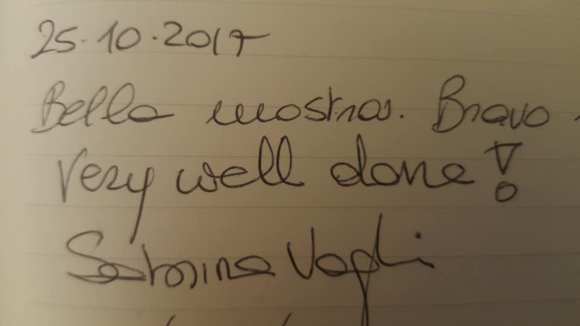 25.10.2017
Bella mostra. Bravo.
Very well done!
Sabrina Vagli